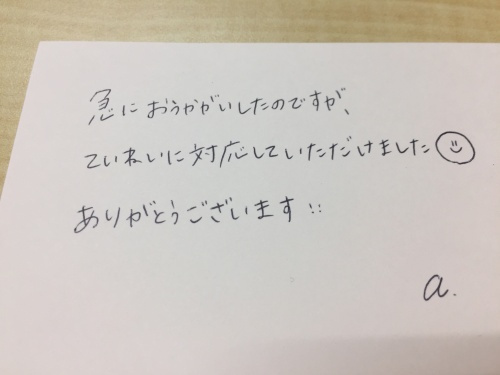 急におうかがいしたのですが、
ていねいに対応していただけました☺
ありがとうございます!!
a.